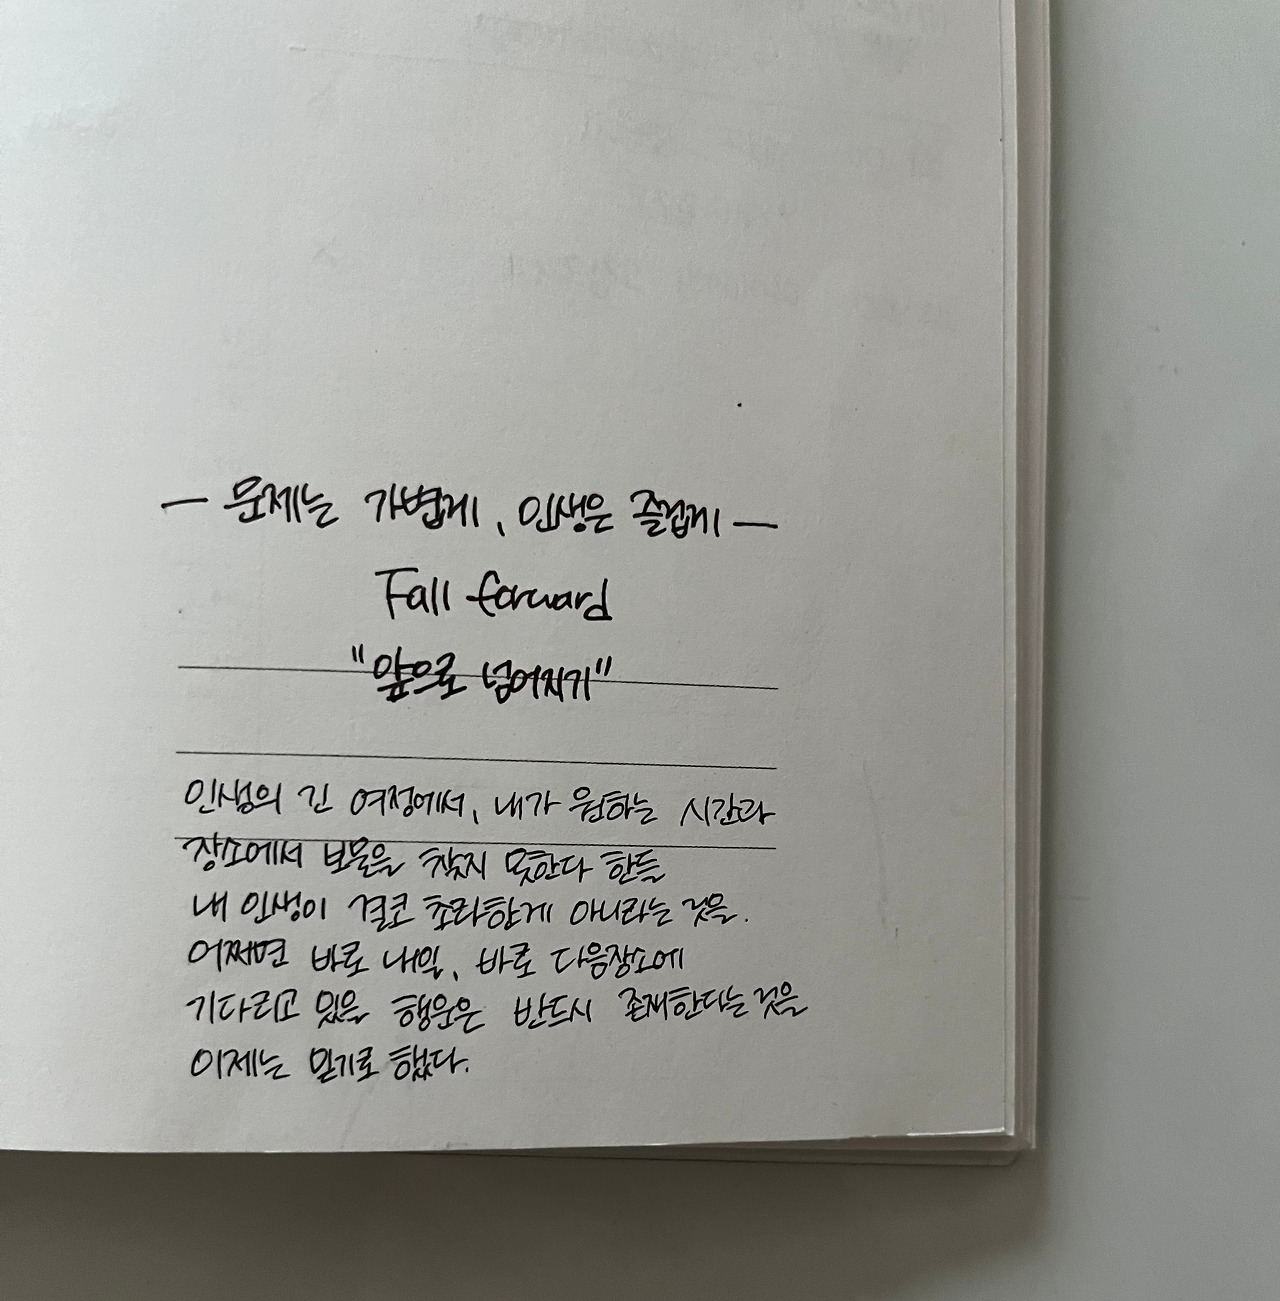 — 문제는 가볍게, 인생은 즐겁게 —
Fall forward
"앞으로 넘어지기"
인생의 긴 여정에서, 내가 원하는 시간과
장소에서 보물을 찾지 못한다 한들
내 인생이 결코 초라한게 아니라는 것을.
어쩌면 바로 내일, 바로 다음장소에
기다리고 있을 행운은 반드시 존재한다는 것을
이제는 믿기로 했다.